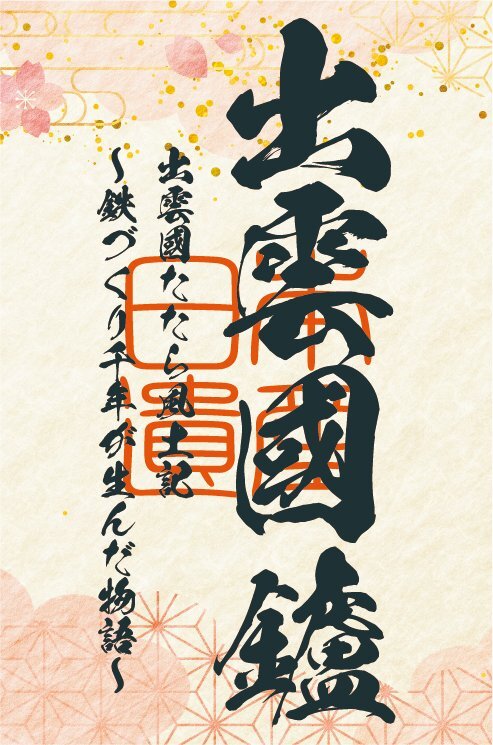 出雲國鑪
出雲國たたら風土記
～鉄づくり千年が生んだ物語～
日本遺産